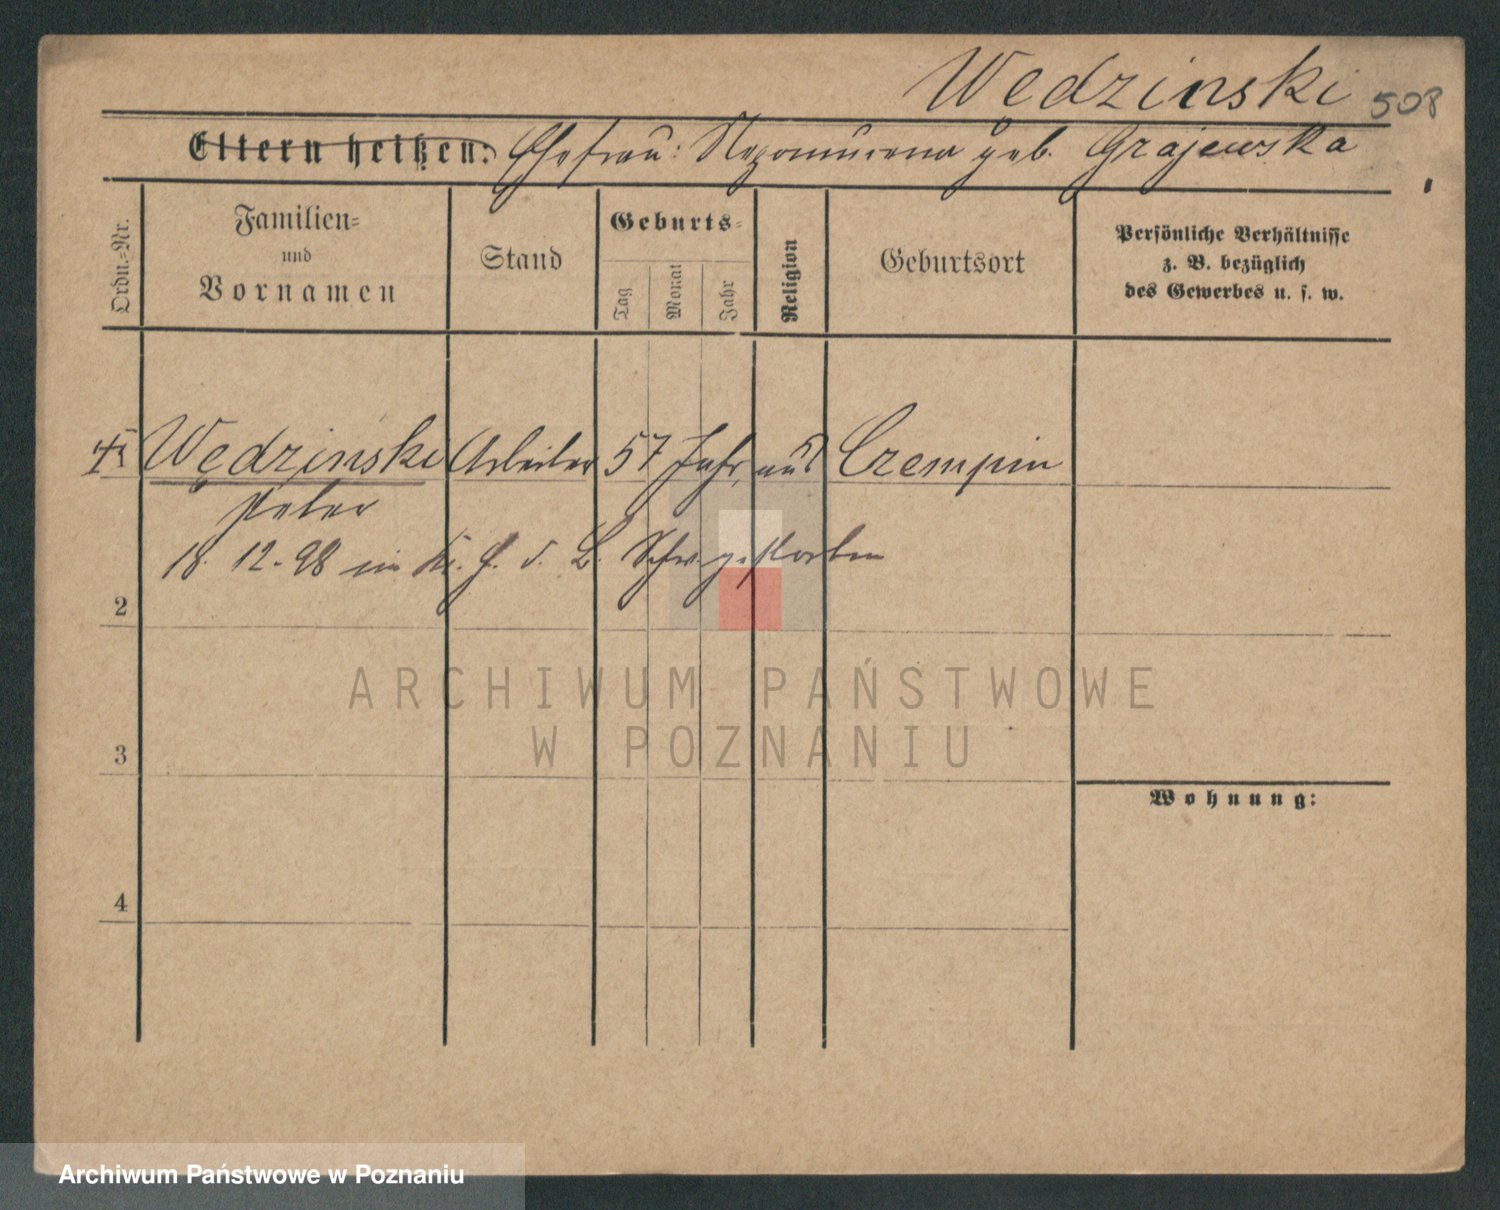 Wedzinski 508
Eltern heißen: Ehefrau: Nepomucena geb. Grajewska
Ordn.-Nr.
Familien-
und
Vornamen
Stand
Geburts-
Tag
Monat
Jahr
Religion
Geburtsort
Persönliche Verhältnisse
z. B. bezüglich
des Gewerbes u. s. w.
Wędzinski Arbeiter 57 Jahr aus Czempin
Peter
18. 12. 98 im Kr. H. d. B. Schw. gestorben
2
3
4
Wohnung:
ARCHIWUM PAŃSTWOWE
W POZNANIU
Archiwum Państwowe w Poznaniu